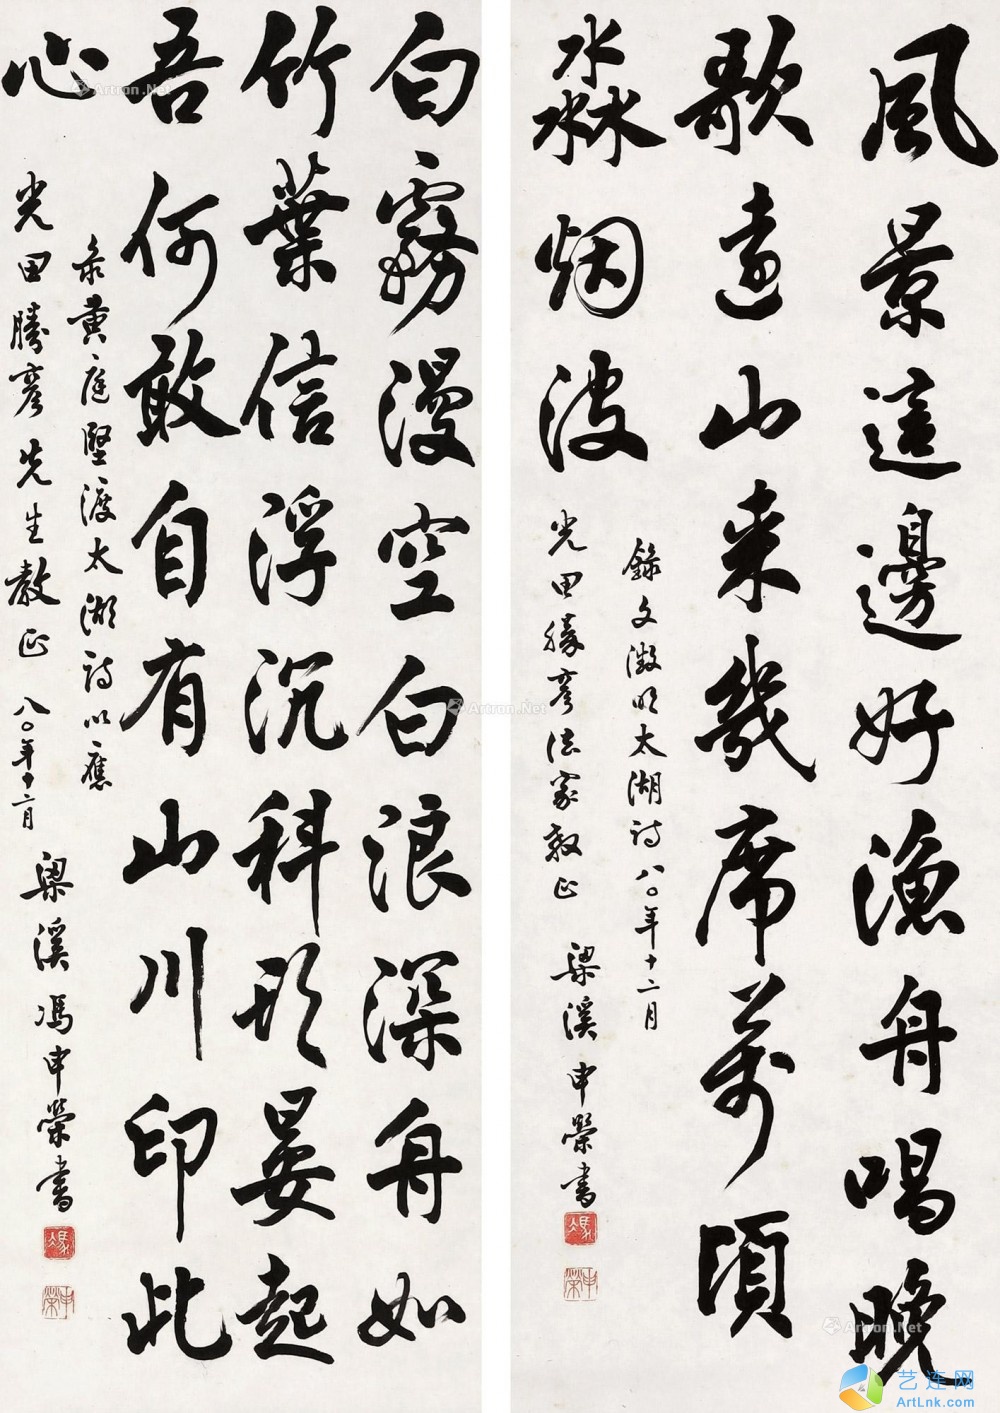 風景這邊好漁舟唱晚
歌遠山来幾席萬頃
淼烟波
錄文徵明太湖詩八〇年十二月
光田勝彦法家教正
梁溪申榮書
白霧漫空白浪深舟如
竹葉信浮沉科頭晏起
吾何敢自有山川印此
心
录黄庭堅渡太湖詩以應
光田勝彦先生教正 八〇年十二月
梁溪馮申榮書
Artron.Net
Artron.Net
Artron.Net
艺连网
ArtLnk.com